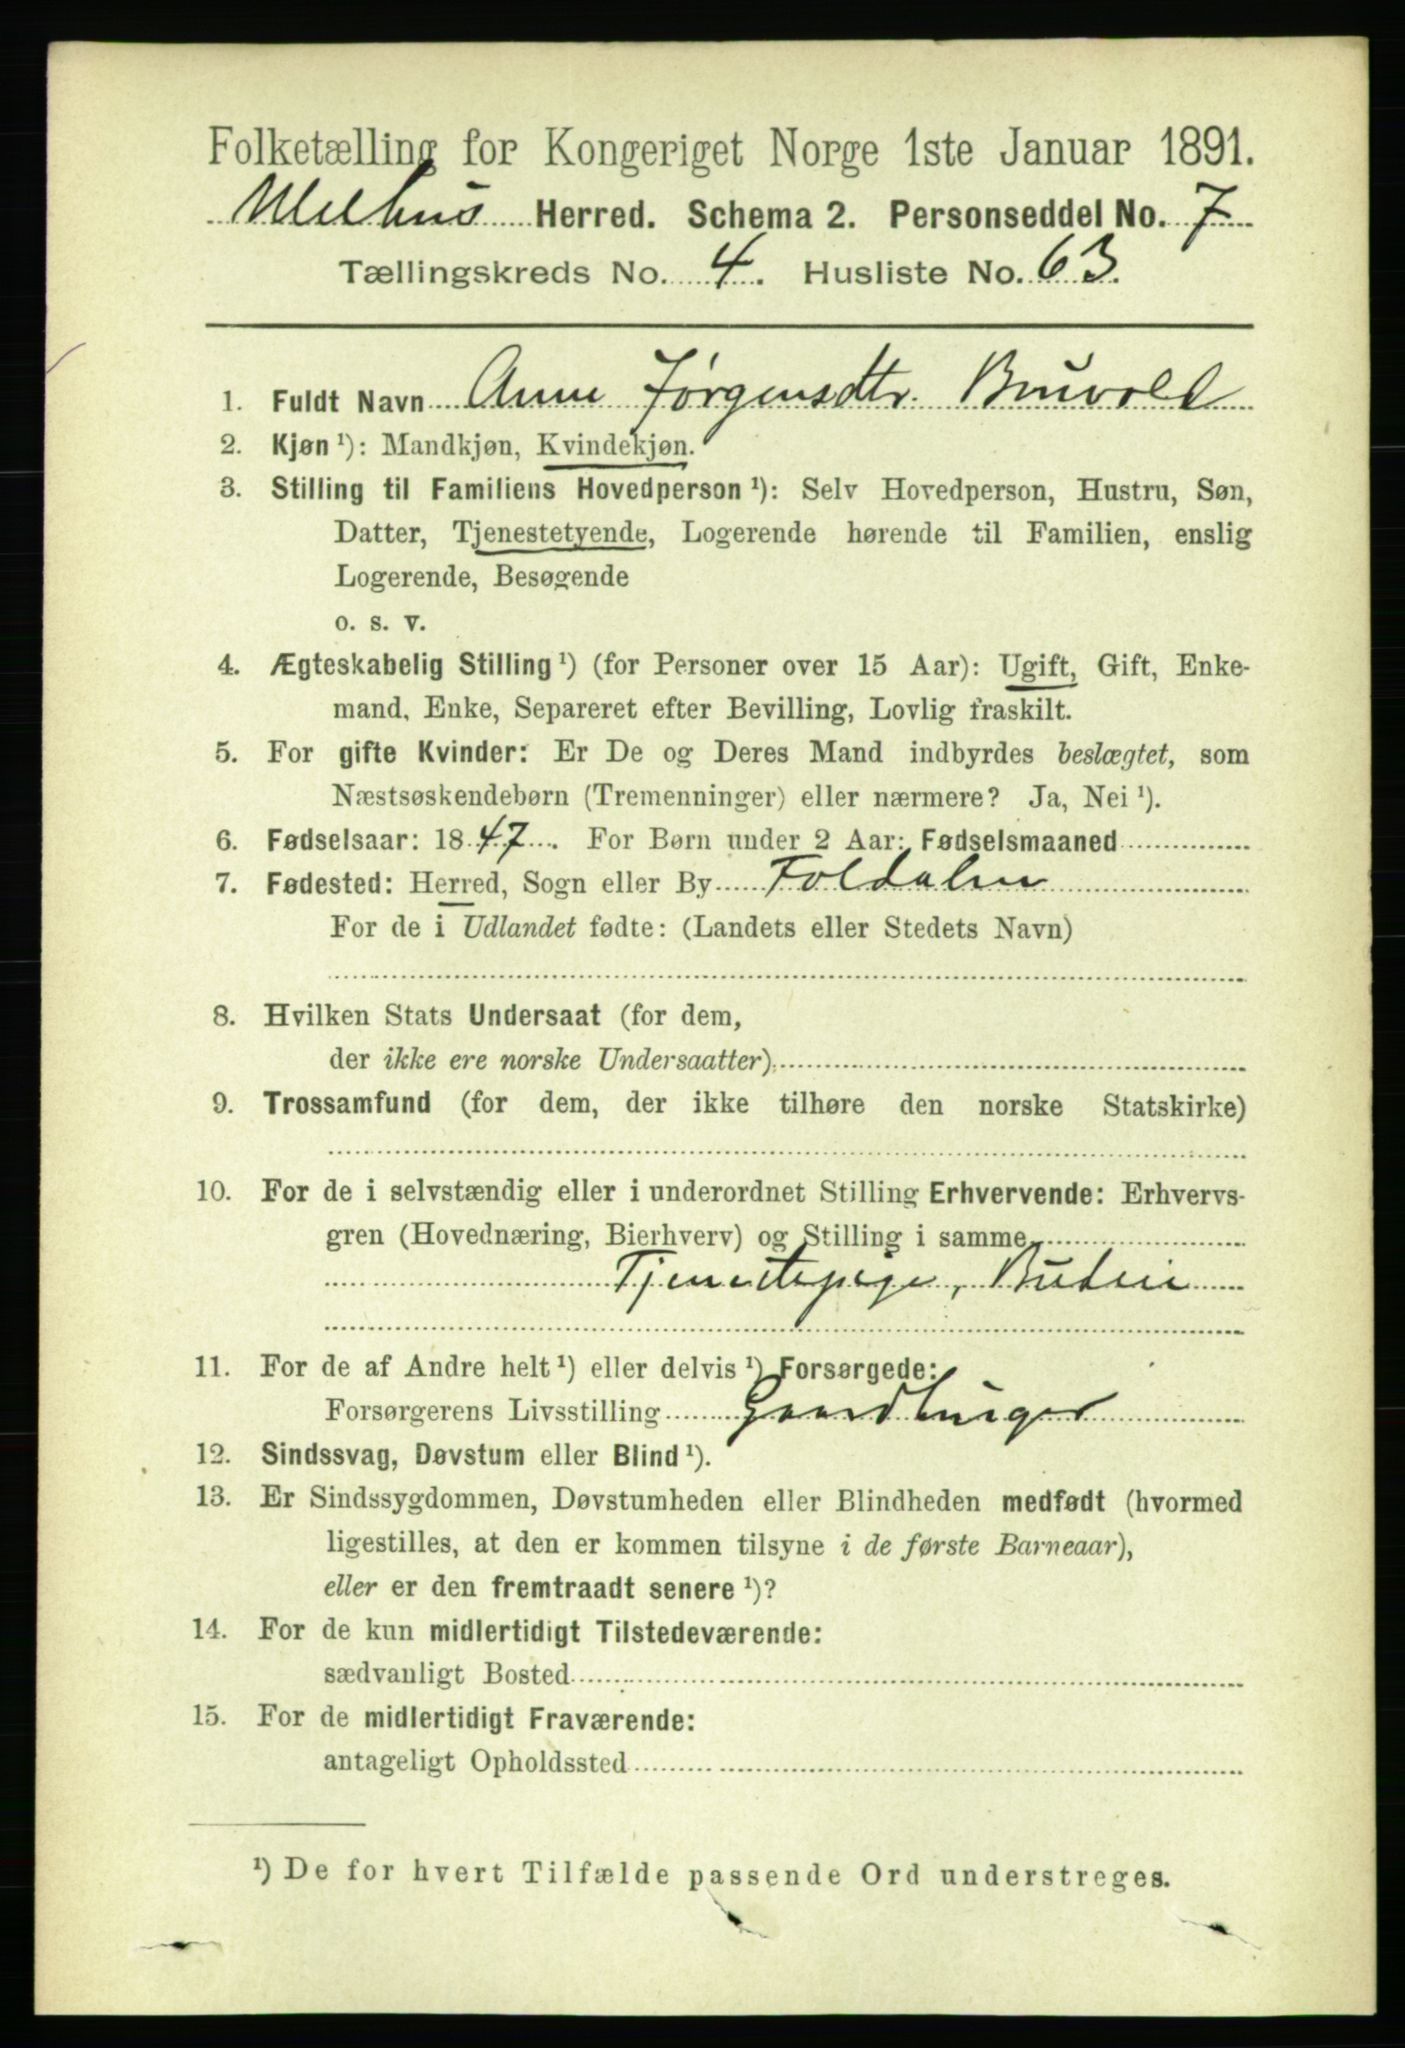 Folketælling for Kongeriget Norge 1ste Januar 1891.
Melhus Herred. Schema 2. Personseddel No. 7
Tællingskreds No. 4. Husliste No. 63.
1. Fuldt Navn Anne Jørgensdtr. Bruvold
2. Kjøn ¹): Mandkjøn, Kvindekjøn.
3. Stilling til Familiens Hovedperson ¹): Selv Hovedperson, Hustru, Søn,
Datter, Tjenestetyende, Logerende hørende til Familien, enslig
Logerende, Besøgende
o. s. v.
4. Ægteskabelig Stilling ¹) (for Personer over 15 Aar): Ugift, Gift, Enke-
mand, Enke, Separeret efter Bevilling, Lovlig fraskilt.
5. For gifte Kvinder: Er De og Deres Mand indbyrdes beslægtet, som
Næstsøskendebørn (Tremenninger) eller nærmere? Ja, Nei ¹).
6. Fødselsaar: 1847. For Børn under 2 Aar: Fødselsmaaned
7. Fødested: Herred, Sogn eller By Foldalen
For de i Udlandet fødte: (Landets eller Stedets Navn)
8. Hvilken Stats Undersaat (for dem,
der ikke ere norske Undersaatter)
9. Trossamfund (for dem, der ikke tilhøre den norske Statskirke)
10. For de i selvstændig eller i underordnet Stilling Erhvervende: Erhvervs-
gren (Hovednæring, Bierhverv) og Stilling i samme
Tjenestepige, Budeie
11. For de af Andre helt ¹) eller delvis ¹) Forsørgede:
Forsørgerens Livsstilling Gaardbruger
12. Sindssvag, Døvstum eller Blind ¹).
13. Er Sindssygdommen, Døvstumheden eller Blindheden medfødt (hvormed
ligestilles, at den er kommen tilsyne i de første Barneaar),
eller er den fremtraadt senere ¹)?
14. For de kun midlertidigt Tilstedeværende:
sædvanligt Bosted
15. For de midlertidigt Fraværende:
antageligt Opholdssted
¹) De for hvert Tilfælde passende Ord understreges.